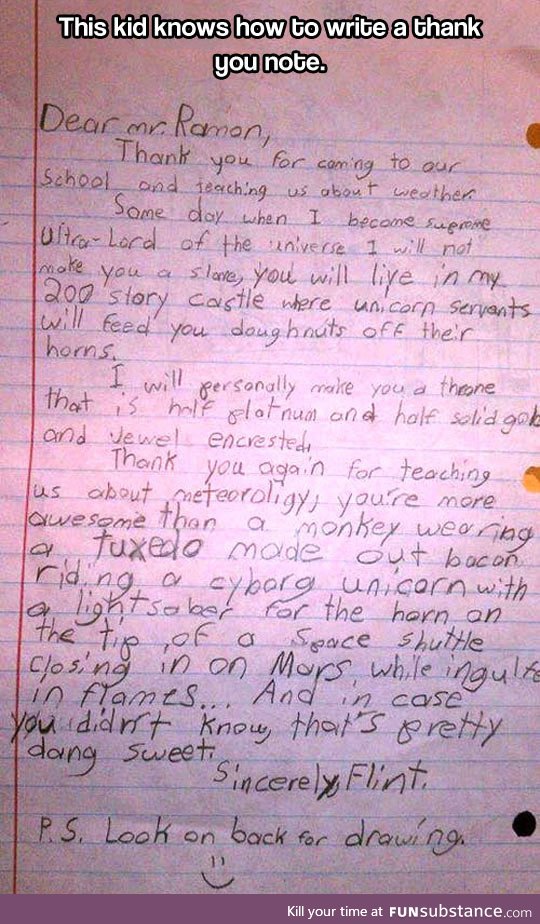 This kid knows how to write a thank
you note.
Dear mr. Ramon,
Thank you for coming to our
School and teaching us about weather.
Some day when I become supreme
Ultra-Lord of the universe I will not
make you a slave, you will live in my
200 story castle where unicorn servants
will feed you doughnuts off their
horns.
I will personally make you a throne
that is half platnum and half solid gold
and jewel encrested.
Thank you again for teaching
us about meteoroligy, you're more
awesome than a monkey wearing
a tuxedo made out bacon
riding a cyborg unicorn with
a lightsaber for the horn on
the tip of a space shuttle
closing in on Mars while ingulfed
in flames... And in case
you didn't know, that's pretty
dang sweet.
Sincerely, Flint.
P.S. Look on back for drawing.
Kill your time at FUNsubstance.com